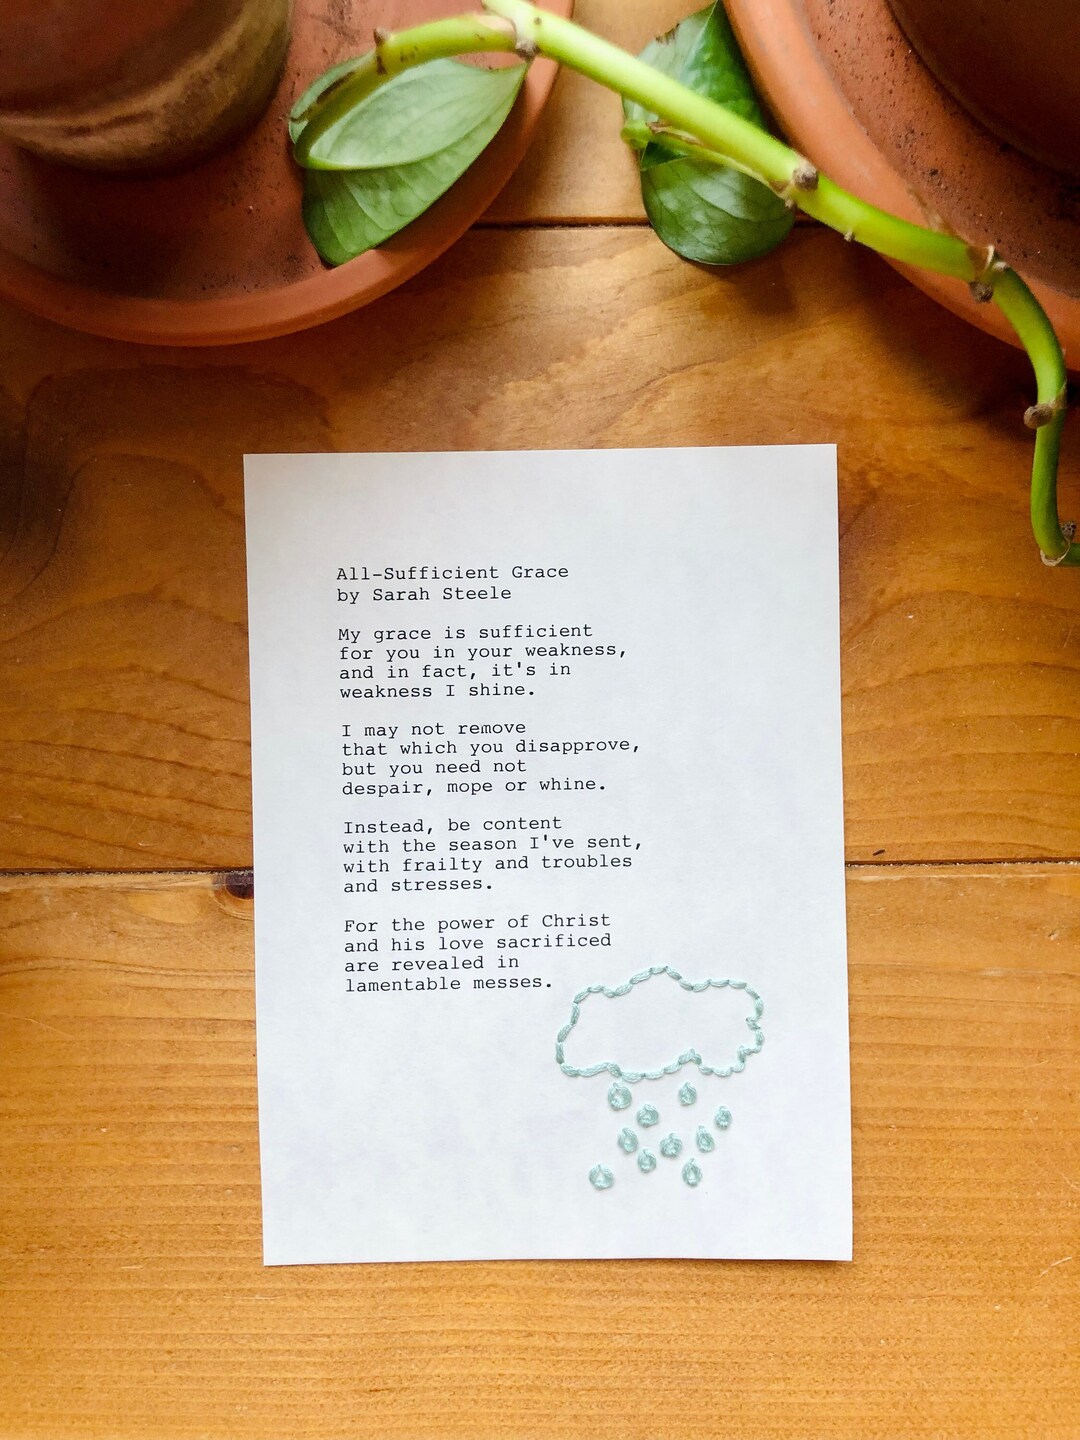 All-Sufficient Grace
by Sarah Steele
My grace is sufficient
for you in your weakness,
and in fact, it's in
weakness I shine.
I may not remove
that which you disapprove,
but you need not
despair, mope or whine.
Instead, be content
with the season I've sent,
with frailty and troubles
and stresses.
For the power of Christ
and his love sacrificed
are revealed in
lamentable messes.